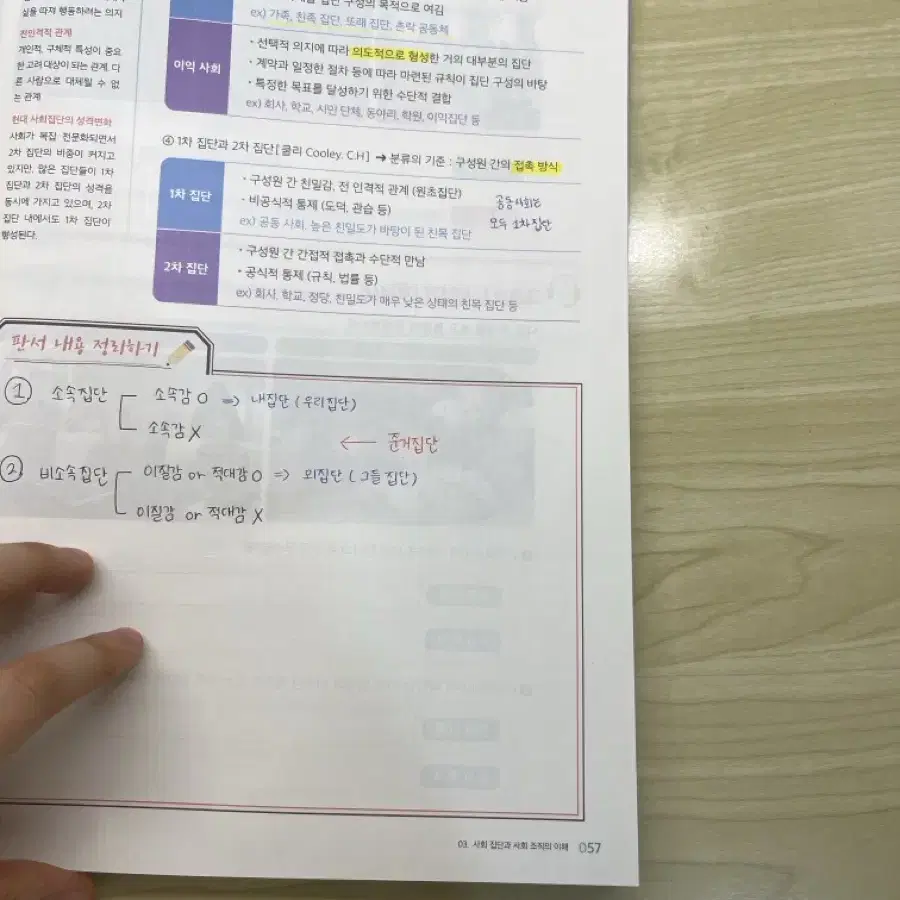 실을 따져 행동하려는 의지
전인격적 관계
개인적, 구체적 특성이 중요
한 고려 대상이 되는 관계. 다
른 사람으로 대체될 수 없
는 관계
현대 사회집단의 성격변화
사회가 복잡 전문화되면서
2차 집단의 비중이 커지고
있지만, 많은 집단들이 1차
집단과 2차 집단의 성격을
동시에 가지고 있으며, 2차
집단 내에서도 1차 집단이
형성된다.
집단 구성의 목적으로 여김
ex) 가족, 친족 집단, 또래 집단, 촌락 공동체
이익 사회
• 선택적 의지에 따라 의도적으로 형성한 거의 대부분의 집단
• 계약과 일정한 절차 등에 따라 마련된 규칙이 집단 구성의 바탕
• 특정한 목표를 달성하기 위한 수단적 결합
ex) 회사, 학교, 시민 단체, 동아리, 학원, 이익집단 등
④ 1차 집단과 2차 집단[쿨리 Cooley. C.H] ➔ 분류의 기준 : 구성원 간의 접촉 방식
1차 집단
• 구성원 간 친밀감, 전 인격적 관계 (원초집단)
• 비공식적 통제 (도덕, 관습 등)
ex) 공동 사회, 높은 친밀도가 바탕이 된 친목 집단
공동사회는
모두 1차집단
2차 집단
• 구성원 간 간접적 접촉과 수단적 만남
• 공식적 통제 (규칙, 법률 등)
ex) 회사, 학교, 정당, 친밀도가 매우 낮은 상태의 친목 집단 등
판서 내용 정리하기
① 소속집단 소속감 O => 내집단 (우리집단)
소속감 X
← 준거집단
② 비소속집단 이질감 or 적대감 O => 외집단 (그들 집단)
이질감 or 적대감 X
03. 사회 집단과 사회 조직의 이해 057